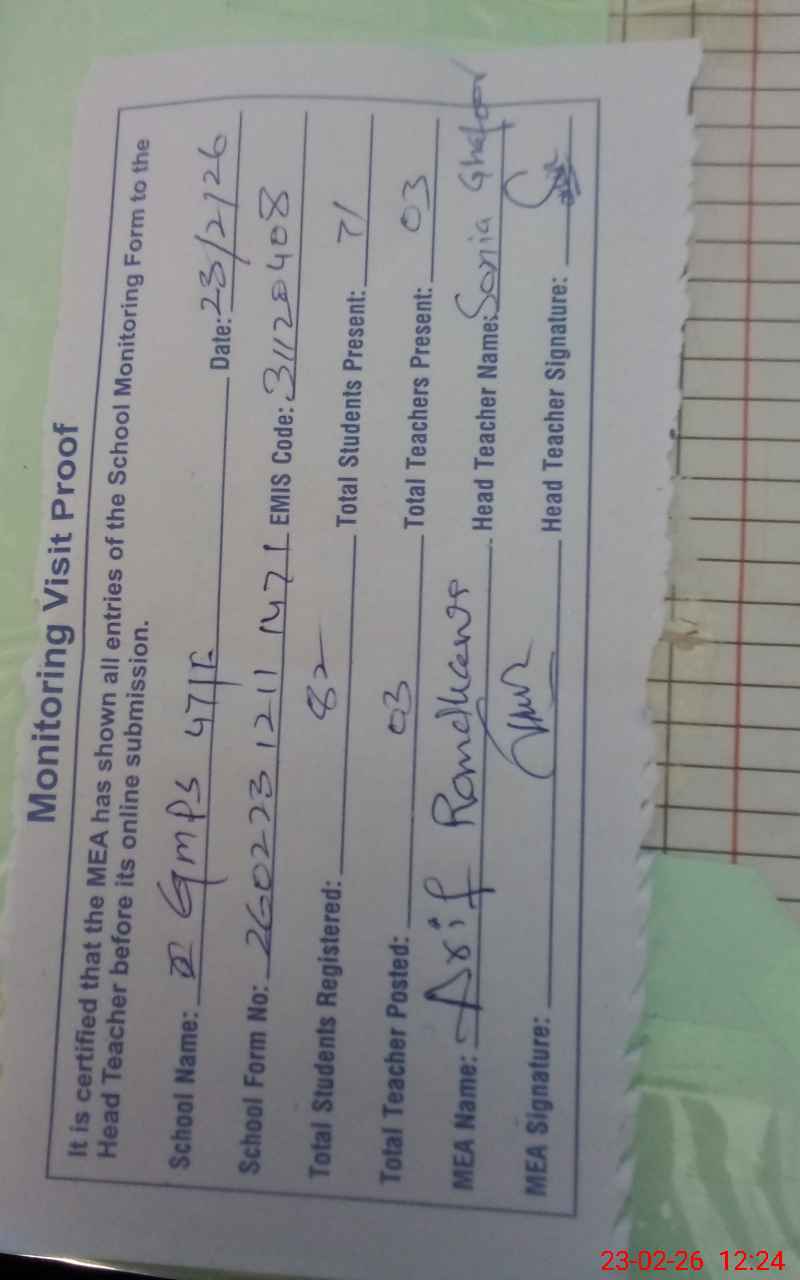 Monitoring Visit Proof
It is certified that the MEA has shown all entries of the School Monitoring Form to the
Head Teacher before its online submission.
School Name: GMPS 47/F Date: 23/2/26
School Form No: 2602231211 1471 EMIS Code: 31120408
Total Students Registered: 82 Total Students Present: 71
Total Teacher Posted: 03 Total Teachers Present: 03
MEA Name: Arif Ramdhawa Head Teacher Name: Sonia Ghafoor
MEA Signature: Head Teacher Signature:
23-02-26 12:24